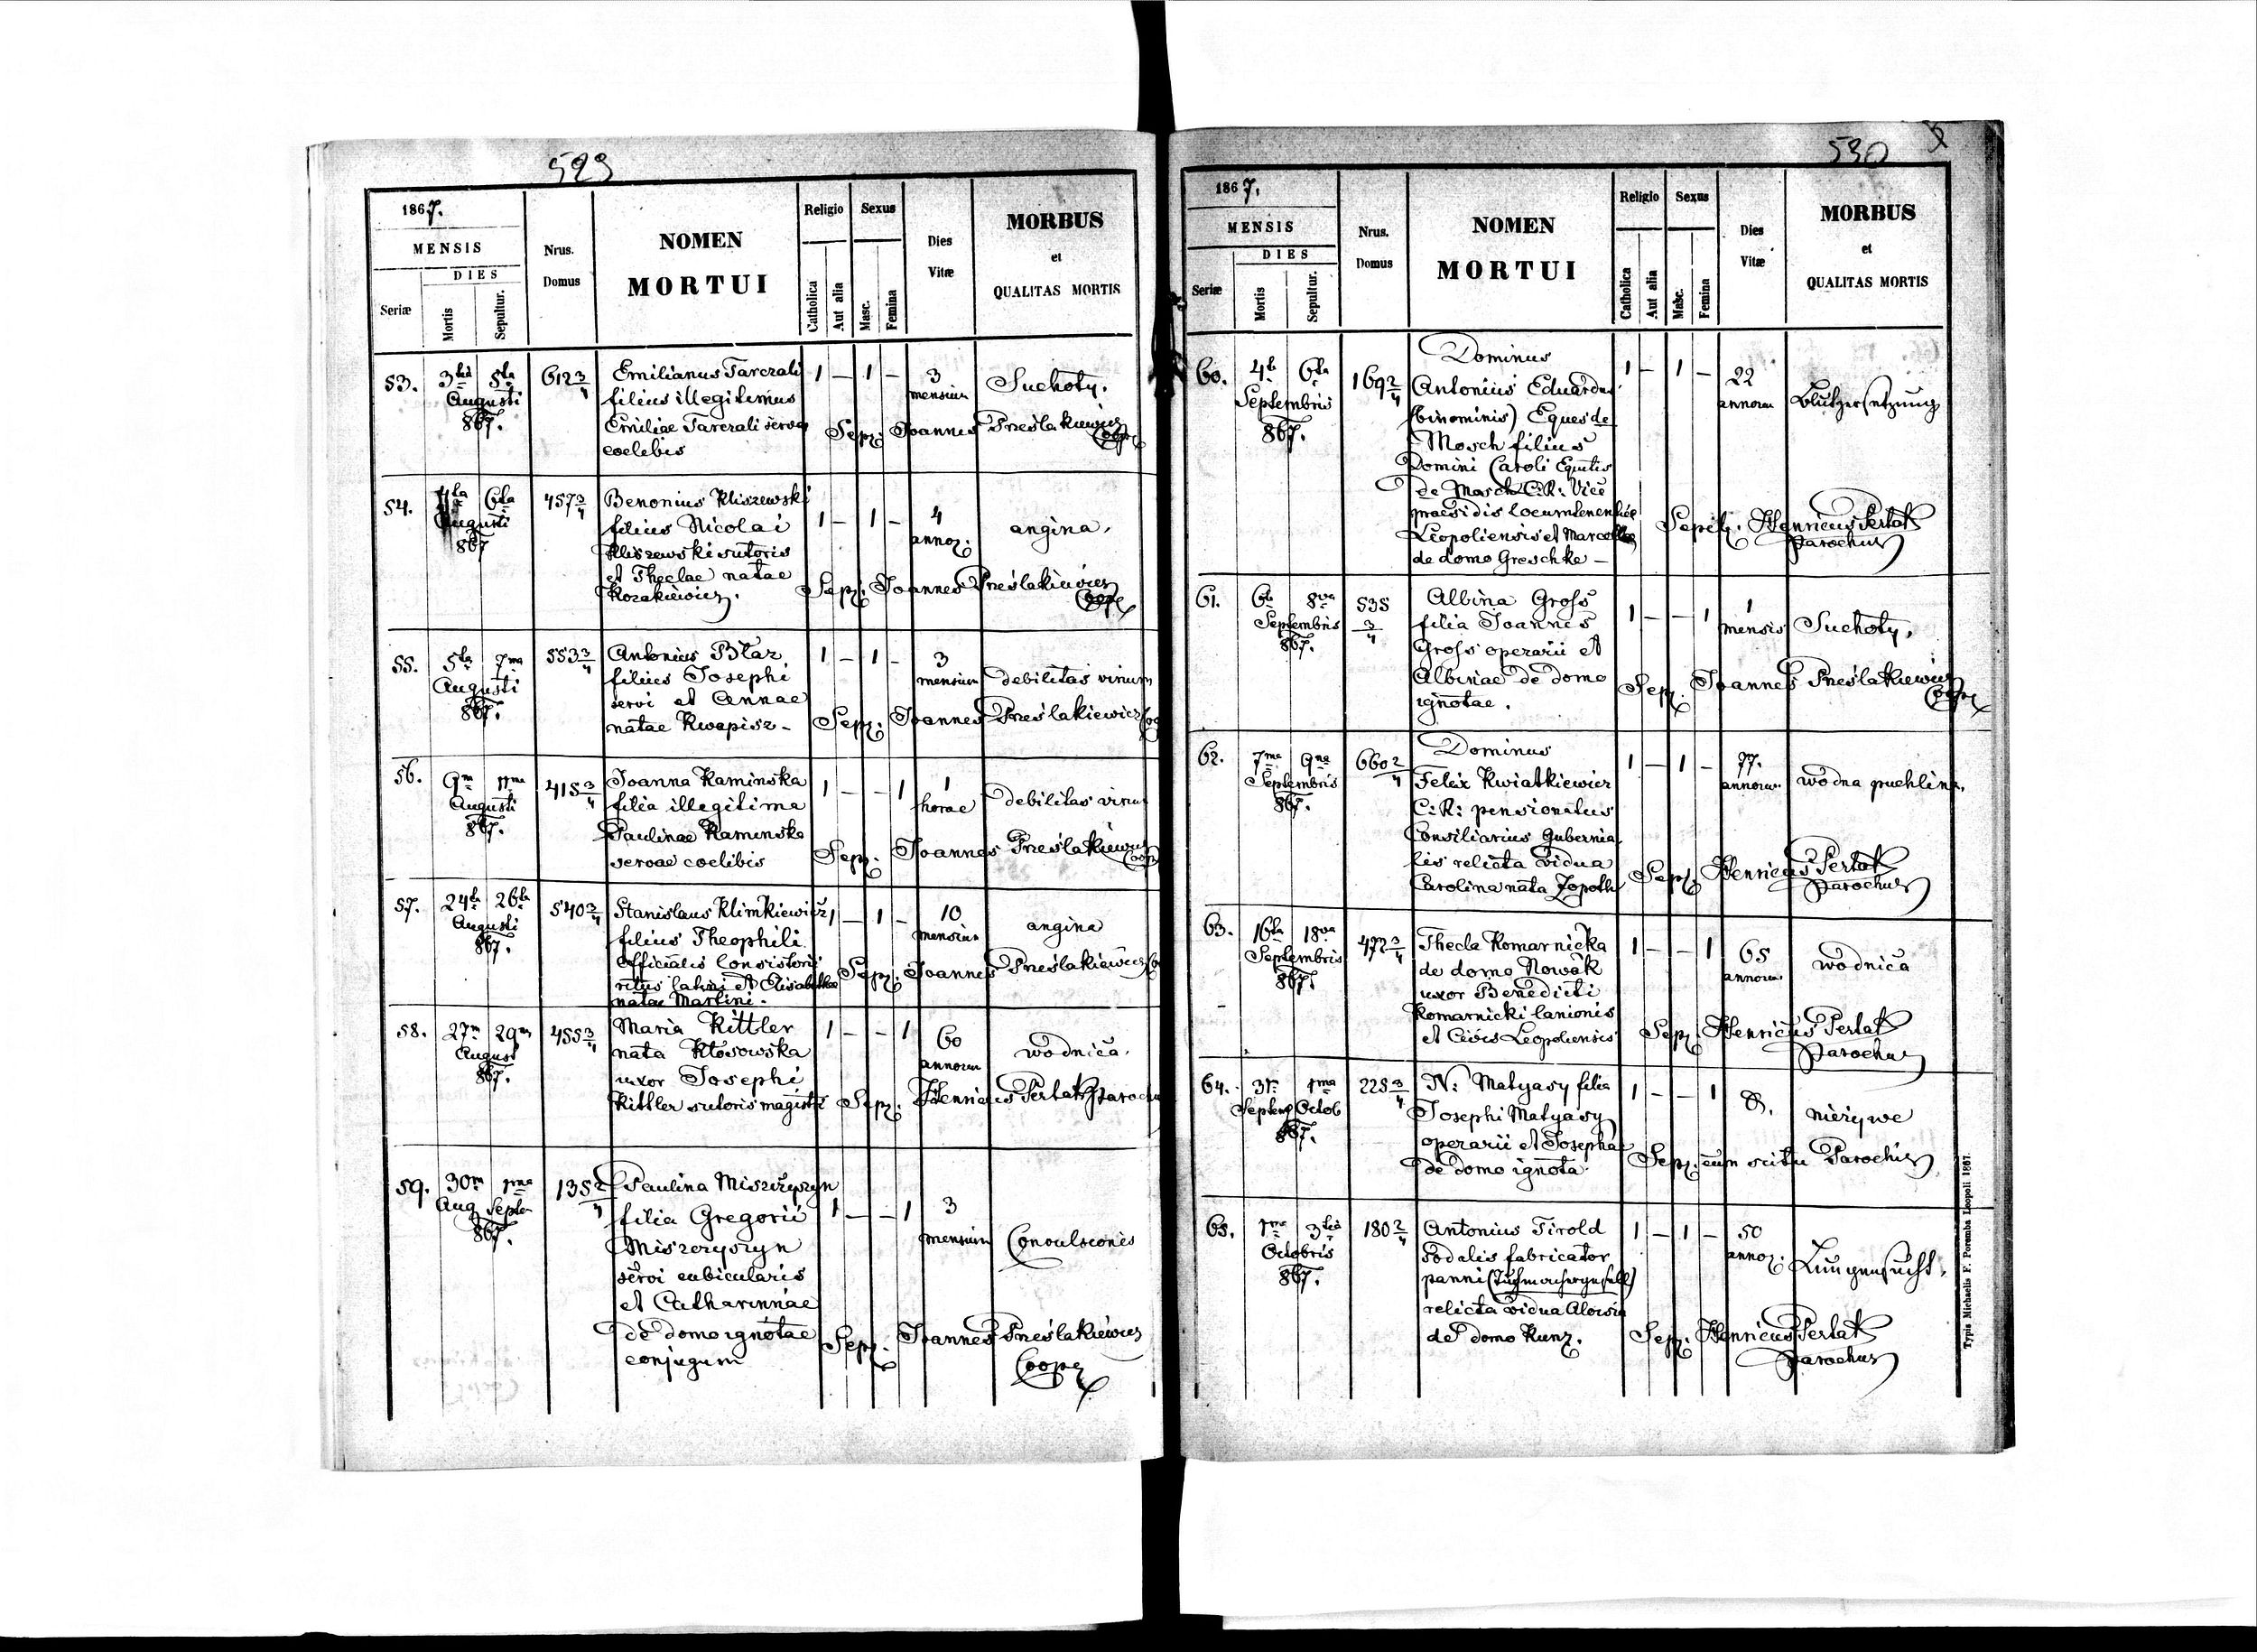 529
1867.
MENSIS
DIES
Seriæ
Mortis
Sepultur.
Nrus.
Domus
NOMEN
MORTUI
Religio
Catholica
Aut alia
Sexus
Masc.
Femina
Dies
Vitæ
MORBUS
et
QUALITAS MORTIS
53. 3tia 5ta 612 3/4 Emilianus Tarczali 1 — 1 — 3 Suchoty.
Augusti filius illegitimus mensium
867. Emiliae Tarczali servae Sep: Joannes Preślakiewicz
coelibis Coop
54. 4ta 6ta 457 3/4 Benonius Kliszewski 1 — 1 — 4 angina.
Augusti filius Nicolai annor.
867 Kliszewski sutoris
et Theclae natae Sep: Joannes Preślakiewicz
Kozakiewicz. Coop
55. 5ta 7ma 553 3/4 Antonius Błaz 1 — 1 — 3 debilitas virium
Augusti filius Josephi mensium
867. servi et Annae Sep: Joannes Preślakiewicz Coo
natae Kwapisz —
56. 9na 11ma 415 3/4 Joanna Kaminska 1 — — 1 1 debilitas viriu
Augusti filia illegitima horae
867. Paulinae Kaminska Sep: Joannes Preślakiewicz
servae coelibis Coop
57. 24ta 26ta 540 3/4 Stanislaus Klimkiewicz 1 — 1 — 10 angina
Augusti filius Theophili mensium
867. Officialis Consistorii Sep: Joannes Preślakiewicz Co
ritus latini et Elisabethae
natae Martini.
58. 27ma 29na 455 3/4 Maria Kittler 1 — — 1 60 wodnica.
August nata Kłosowska annorum
867. uxor Josephi Sep: Henricus Perlak Paroch
Kittler sutoris magistri
59. 30ma 1ma 135 2/4 Paulina Miszczyszyn 1 — — 1 3 Convulsiones
Aug Septe filia Gregorii mensium
867. Miszczyszyn
servi cubicularis
et Catharinnae
de domo ignotae Sep: Joannes Preślakiewicz
conjugum Coop
530
1867.
MENSIS
DIES
Seriæ
Mortis
Sepultur.
Nrus.
Domus
NOMEN
MORTUI
Religio
Catholica
Aut alia
Sexus
Masc.
Femina
Dies
Vitæ
MORBUS
et
QUALITAS MORTIS
60. 4ta 6ta 169 2/4 Dominus 1 — 1 — 22 Blutzersetzung
Septembris Antonius Eduardus annorum
867. (binominis) Eques de
Mosch filius
Domini Caroli Equitis
de Mosch C:R: Vice
praesidis locumtenentiae Sepel: Henricus Perlak
Leopoliensis et Marcellae Parochus
de domo Greschke —
61. 6ta 8va 535 3/4 Albina Groſs 1 — — 1 1 Suchoty.
Septembris filia Joannis mensis
867. Groſs operarii et
Albinae de domo Sep: Joannes Preślakiewicz
ignotae. Coop
62. 7ma 9na 660 2/4 Dominus 1 — 1 — 77. wodna puchlina.
Septembris Felix Kwiatkiewicz annorum
867. C:R: pensionatus
Consiliarius Gubernia
lis relicta vidua Sep: Henricus Perlak
Carolina nata Zopoth Parochus
63. 16ta 18va 472 3/4 Thecla Komarnicka 1 — — 1 65 wodnica
Septembris de domo Nowak annorum
867. uxor Benedicti
Komarnicki lanionis Sep: Henricus Perlak
et Civis Leopoliensis Parochus
64. 31ma 1ma 225 3/4 N: Matyasy filia 1 — — 1 nieżywe
Septemb Octob Josephi Matyasy
867. operarii et Josepha Sep: cum scitu Parochi
de domo ignota.
65. 1ma 3tia 180 2/4 Antonius Tirold 1 — 1 — 50 Lungensucht.
Octobris sodalis fabricator annor.
867. panni (Tuchmachergesell)
relicta vidua Aloisia Sep: Henricus Perlak
de domo Kunz. Parochus
Typis Michaelis F. Poremba Leopoli 1867.